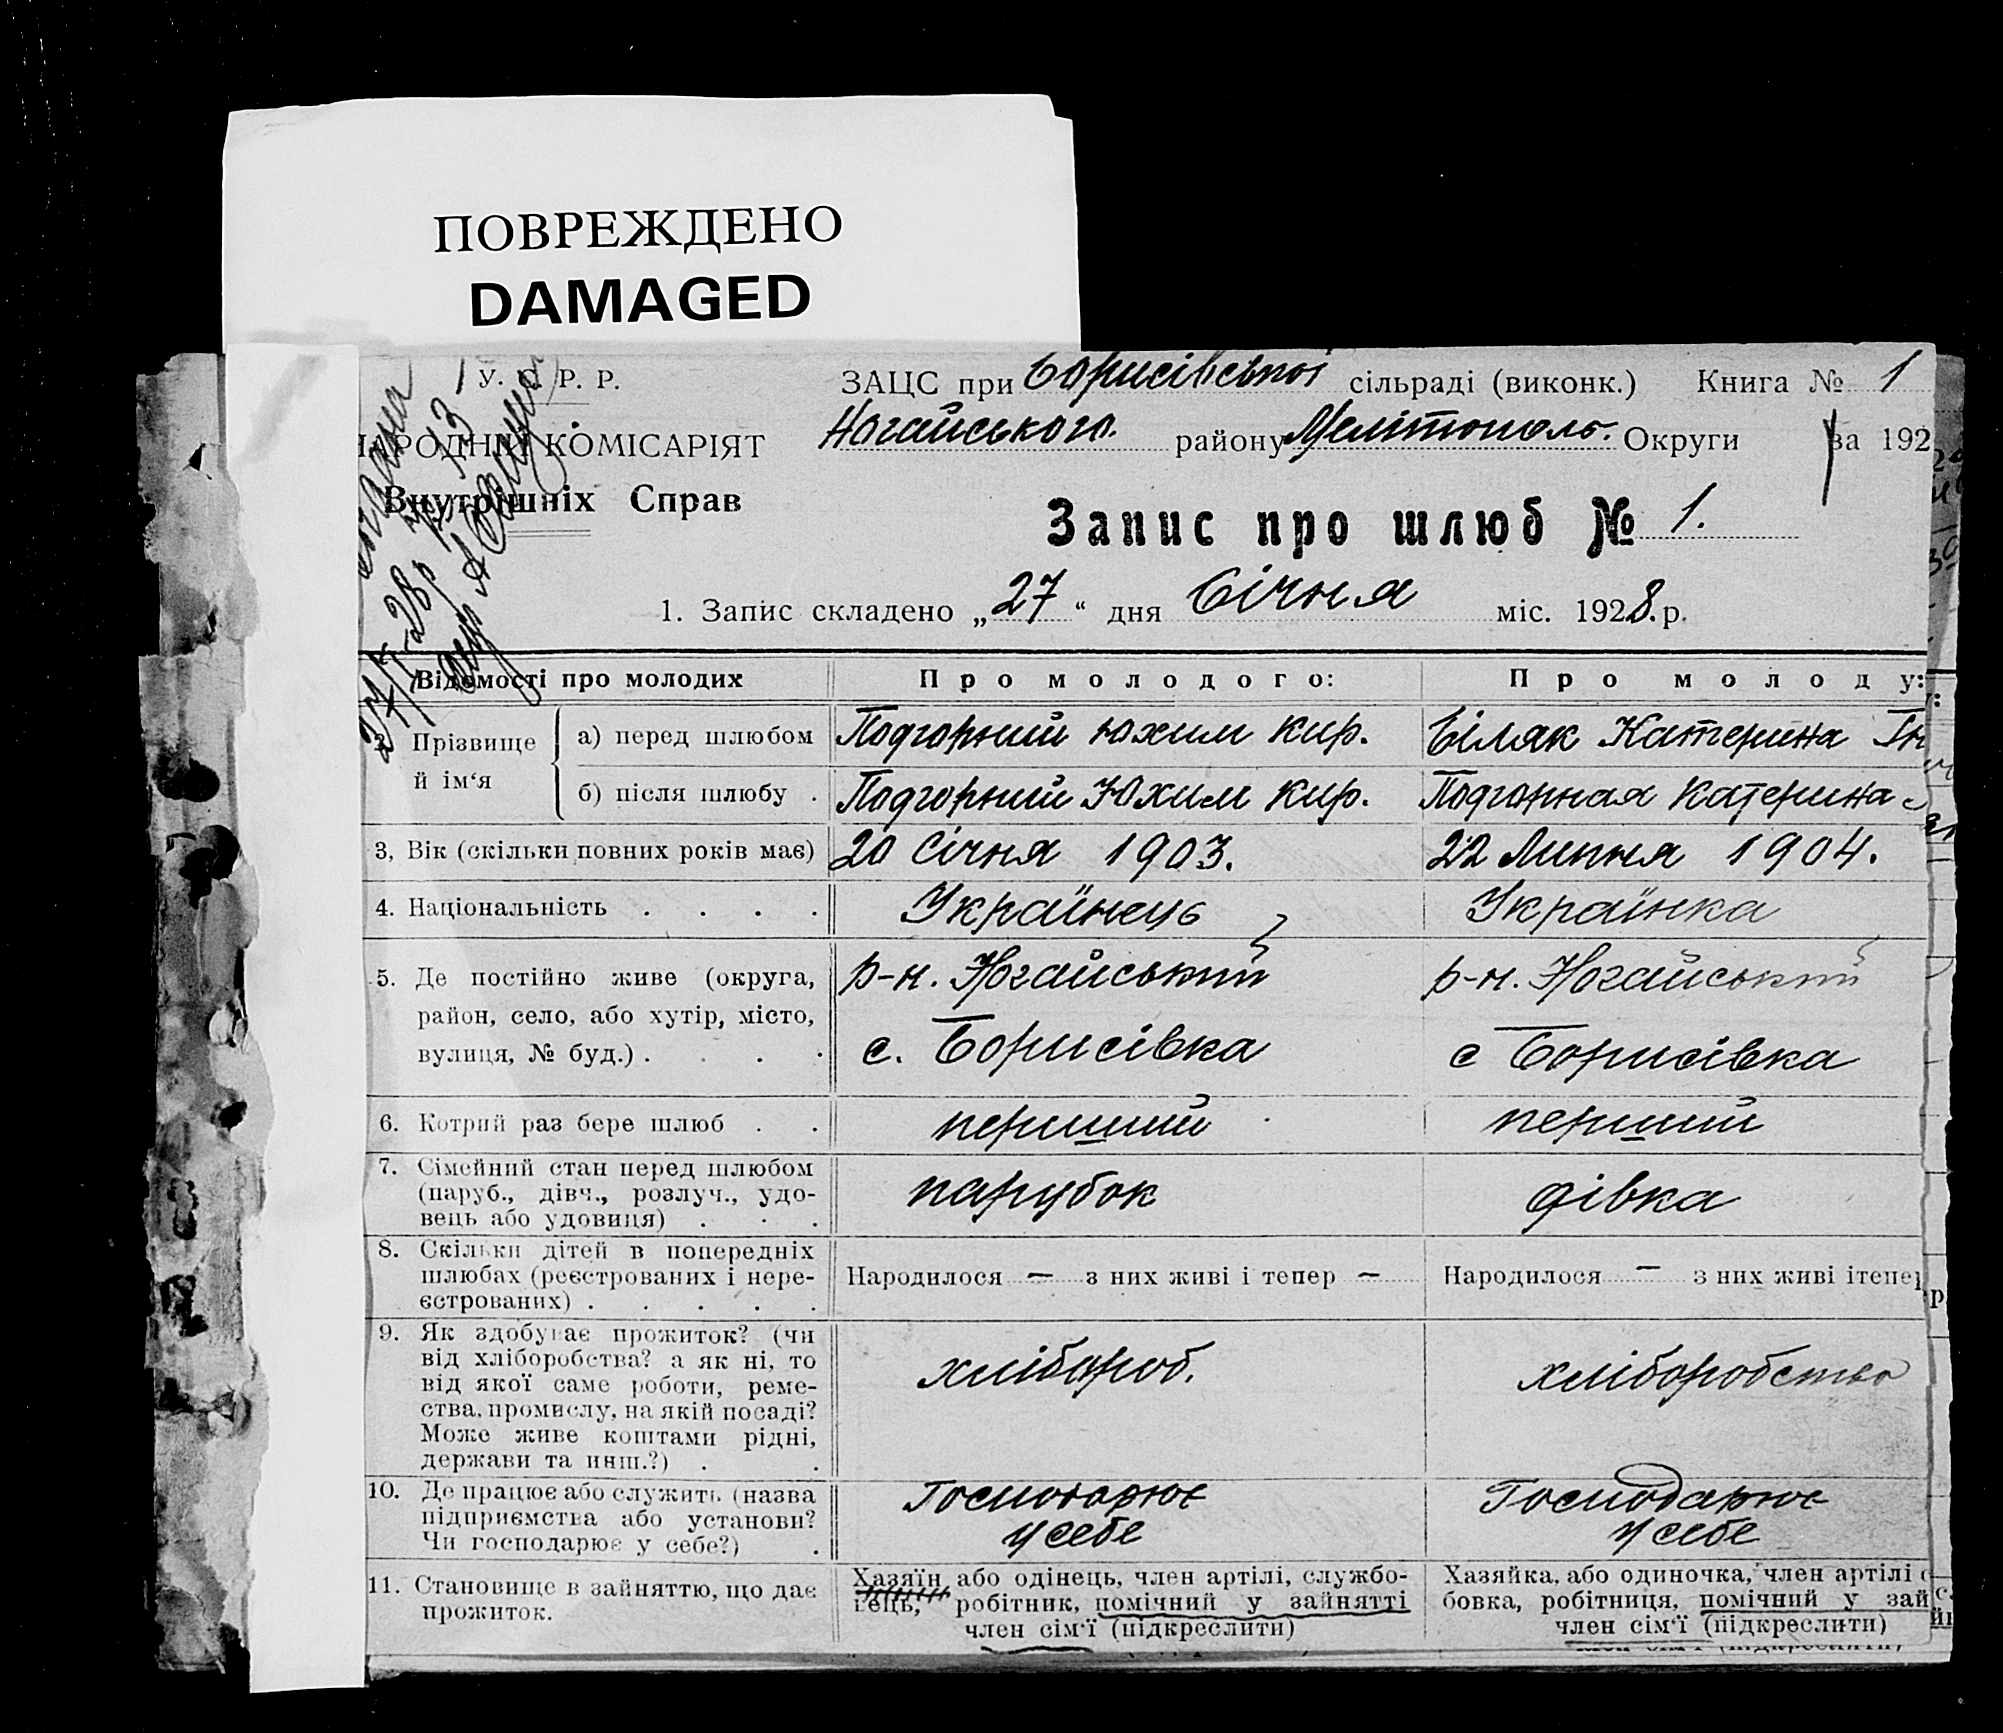 ПОВРЕЖДЕНО
DAMAGED
У. С. Р. Р.
НАРОДНІЙ КОМІСАРІЯТ
Внутрішніх Справ
ЗАЦС при Борисівської сільраді (виконк.) Книга № 1
Ногайського. району Мелітополь. Округи за 192
Запис про шлюб № 1.
1. Запис складено „ 27 “ дня Січня міс. 1928.р.
Відомості про молодих
Про молодого:
Про молоду:
Прізвище й ім‘я
а) перед шлюбом Подгорний Юхим Кир. Біляк Катерина
б) після шлюбу . Подгорний Юхим Кир. Подгорная Катерина
3, Вік (скільки повних років має) 20 Січня 1903. 22 Липня 1904.
4. Національність . . . . Українець Українка
5. Де постійно живе (округа, район, село, або хутір, місто, вулиця, № буд.) . . . .
р-н. Ногайський
с. Борисівка
р-н. Ногайський
с Борисівка
6. Котрий раз бере шлюб . . перший перший
7. Сімейний стан перед шлюбом
(паруб., дівч., розлуч., удо-
вець або удовиця) . . .
парубок дівка
8. Скільки дітей в попередніх
шлюбах (реєстрованих і нере-
єстрованих) . . . . .
Народилося — з них живі і тепер —
Народилося — з них живі ітепер
9. Як здобуває прожиток? (чи
від хліборобства? а як ні, то
від якої саме роботи, реме-
ства, промислу, на якій посаді?
Може живе коштами рідні,
держави та инш.?) . .
хлібороб. хліборобство
10. Де працює або служить (назва
підприємства або установи?
Чи господарює у себе?) .
Господарює
у себе
Господарює
у себе
11. Становище в зайняттю, що дає
прожиток.
Хазяїн або одінець, член артілі, службо-
вець, робітник, помічний у зайнятті
член сім‘ї (підкреслити)
Хазяйка, або одиночка, член артілі
бовка, робітниця, помічний у зай
член сім‘ї (підкреслити)